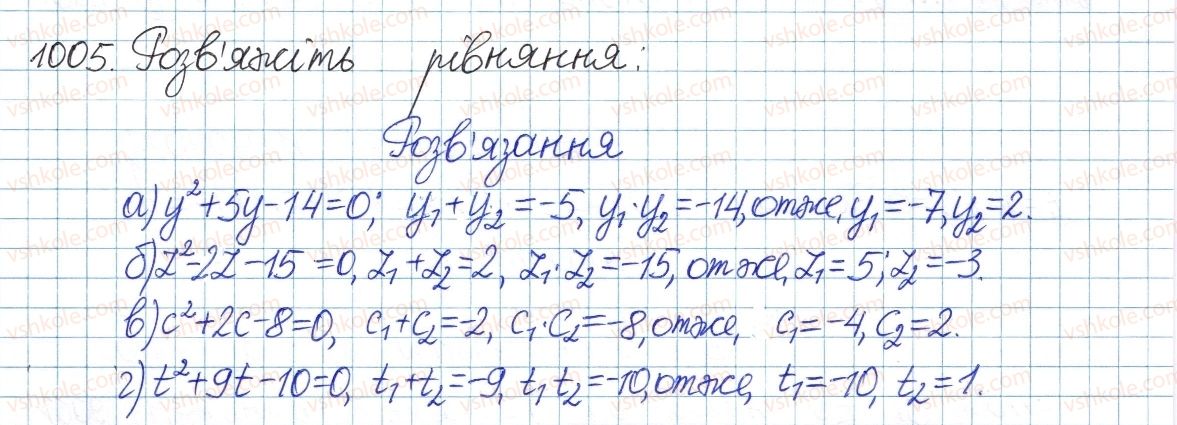 1005. Розв'яжіть рівняння:
Розв'язання
а) y²+5y-14=0; y₁+y₂=-5, y₁·y₂=-14, отже, y₁=-7, y₂=2.
б) z²-2z-15=0, z₁+z₂=2, z₁·z₂=-15, отже, z₁=5; z₂=-3.
в) c²+2c-8=0, c₁+c₂=-2, c₁·c₂=-8, отже, c₁=-4, c₂=2.
г) t²+9t-10=0, t₁+t₂=-9, t₁t₂=-10, отже, t₁=-10, t₂=1.